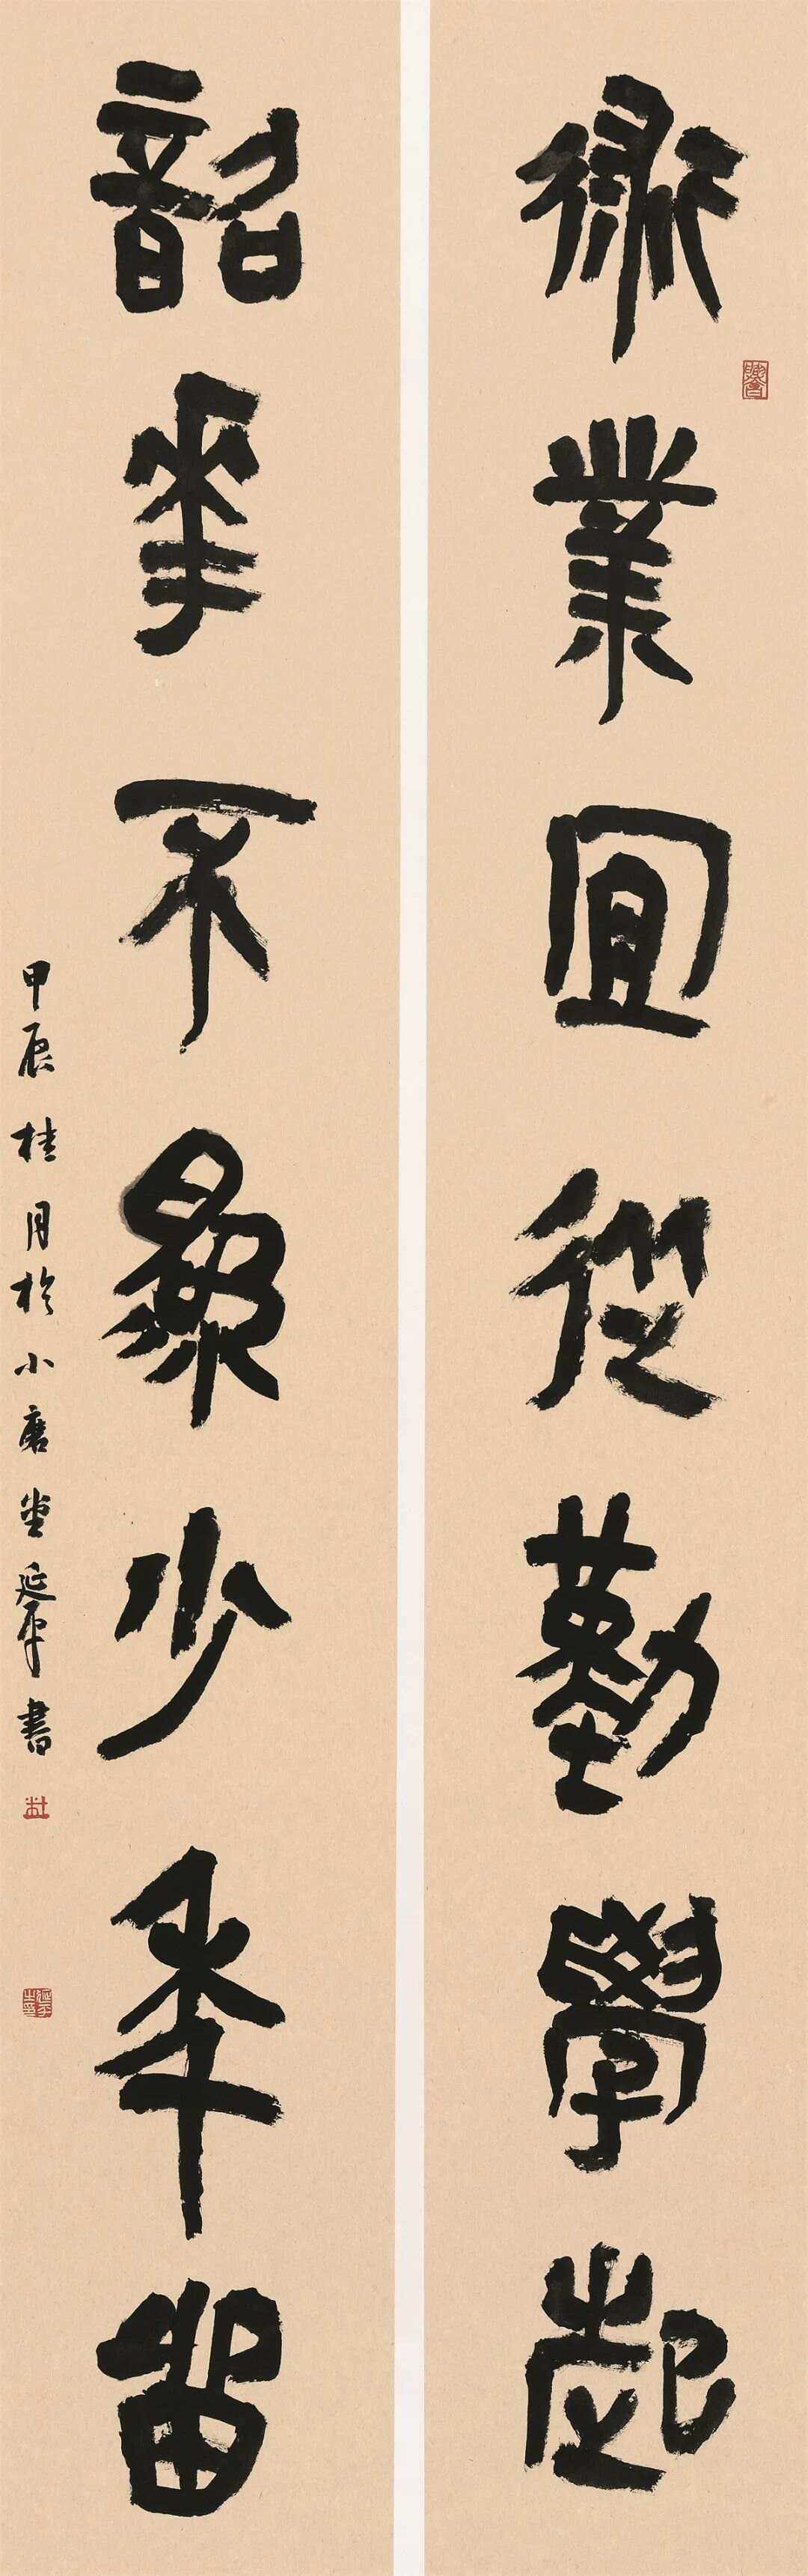 術業宜從勤學起
韶華不爲少年留
甲辰桂月於小堂延書